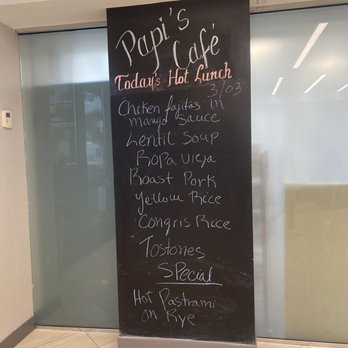 Papi's
Café
Today's Hot Lunch
3/03
Chicken fajitas in
mango Sauce
Lentil Soup
Ropa Vieja
Roast Pork
Yellow Rice
Congris Rice
Tostones
Special
Hot Pastrami
on Rye